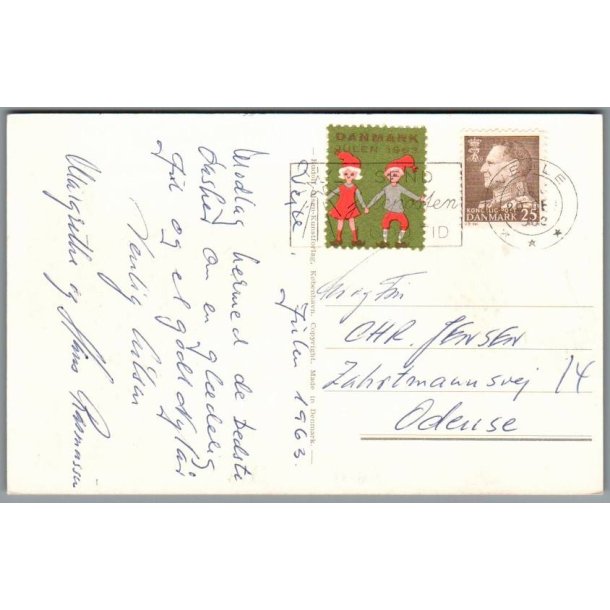 Vejle, Julen 1963.
Modtag hermed de bedste
ønsker om en glædelig
Jul og et godt Nytår
Venlig hilsen
Margrethe og Hans Rasmussen
Kunstforlag, København. Copyright. Made in Denmark.
DANMARK
JULEN 1963
SEND
TID
DANMARK 25
VEJLE
Hr og Fru
CHR. JENSEN
Zahrtmannsvej 14
Odense